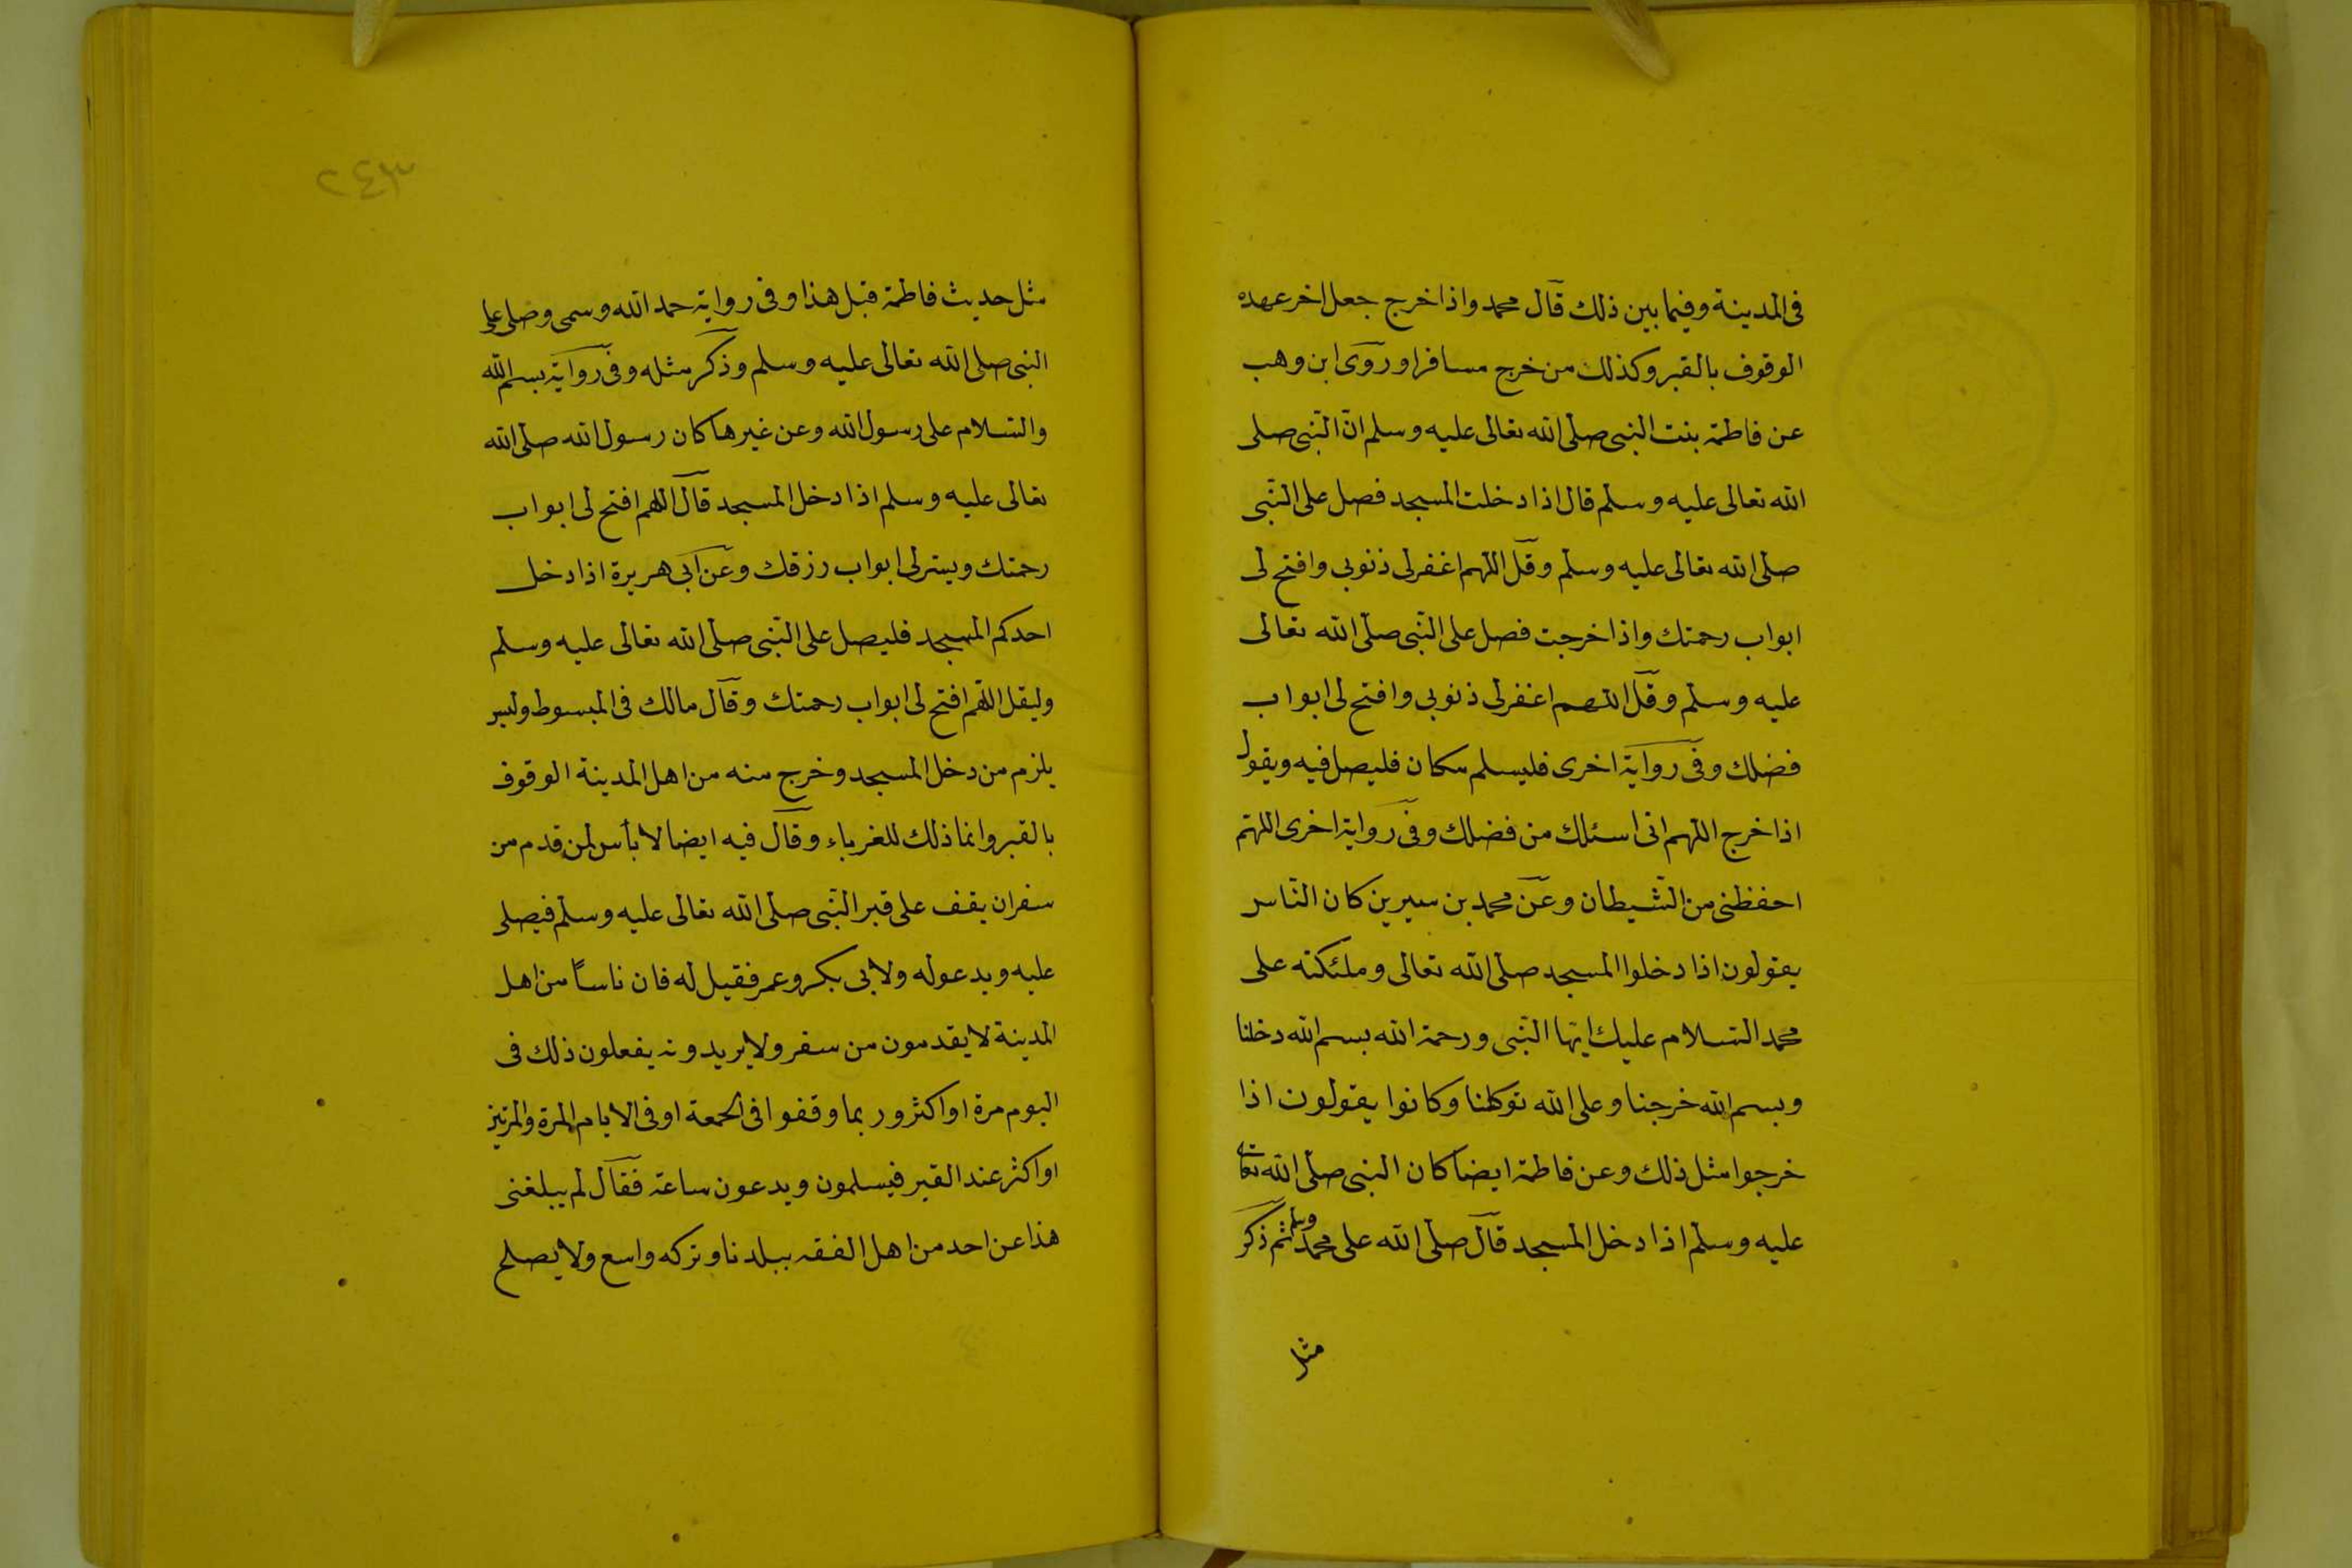 فى المدينة وفيما بين ذلك قال محمد واذا خرج جعل اخر عهده
الوقوف بالقبر وكذلك من خرج مسافرا وروى ابن وهب
عن فاطمة بنت النبى صلى الله تعالى عليه وسلم ان النبى صلى
الله تعالى عليه وسلم قال اذا دخلت المسجد فصل على النبى
صلى الله تعالى عليه وسلم وقل اللهم اغفرلى ذنوبى وافتح لى
ابواب رحمتك واذا خرجت فصل على النبى صلى الله تعالى
عليه وسلم وقل اللهم اغفرلى ذنوبى وافتح لى ابواب
فضلك وفى رواية اخرى فليسلم مكان فليصل فيه ويقول
اذا خرج اللهم انى اسئلك من فضلك وفى رواية اخرى اللهم
احفظنى من الشيطان وعن محمد بن سيرين كان الناس
يقولون اذا دخلوا المسجد صلى الله تعالى وملئكته على
محمد السلام عليك ايها النبى ورحمة الله بسم الله دخلنا
وبسم الله خرجنا وعلى الله توكلنا وكانوا يقولون اذا
خرجوا مثل ذلك وعن فاطمة ايضا كان النبى صلى الله تعالى
عليه وسلم اذا دخل المسجد قال صلى الله على محمد وسلم ثم ذكر
مثل
٢٤٣
مثل حديث فاطمة قبل هذا وفى رواية حمد الله وسمى وصلى على
النبى صلى الله تعالى عليه وسلم وذكر مثله وفى رواية بسم الله
والسلام على رسول الله وعن غيرها كان رسول الله صلى الله
تعالى عليه وسلم اذا دخل المسجد قال اللهم افتح لى ابواب
رحمتك ويسر لى ابواب رزقك وعن ابى هريرة اذا دخل
احدكم المسجد فليصل على النبى صلى الله تعالى عليه وسلم
وليقل اللهم افتح لى ابواب رحمتك وقال مالك فى المبسوط وليس
يلزم من دخل المسجد وخرج منه من اهل المدينة الوقوف
بالقبر وانما ذلك للغرباء وقال فيه ايضا لا بأس لمن قدم من
سفر ان يقف على قبر النبى صلى الله تعالى عليه وسلم فيصلى
عليه ويدعوله ولابى بكر وعمر فقيل له فان ناسا من اهل
المدينة لا يقدمون من سفر ولا يريدونه يفعلون ذلك فى
اليوم مرة او اكثر وربما وقفوا فى الجمعة او فى الايام المرة والمرتين
او اكثر عند القبر فيسلمون ويدعون ساعة فقال لم يبلغنى
هذا عن احد من اهل الفقه ببلدنا وتركه واسع ولا يصلح